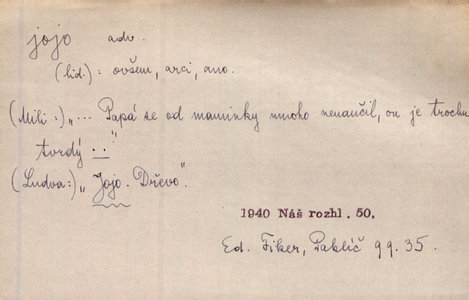 jojo adv.
(lid.): ovšem, arci, ano.
(Mili:) „... Papá se od maminky mnoho nenaučil, on je trochu
tvrdý ..."
(Ludva:) „Jojo. Dřevo".
1940 Náš rozhl. 50.
Ed. Fiker, Paklíč 99. 35.